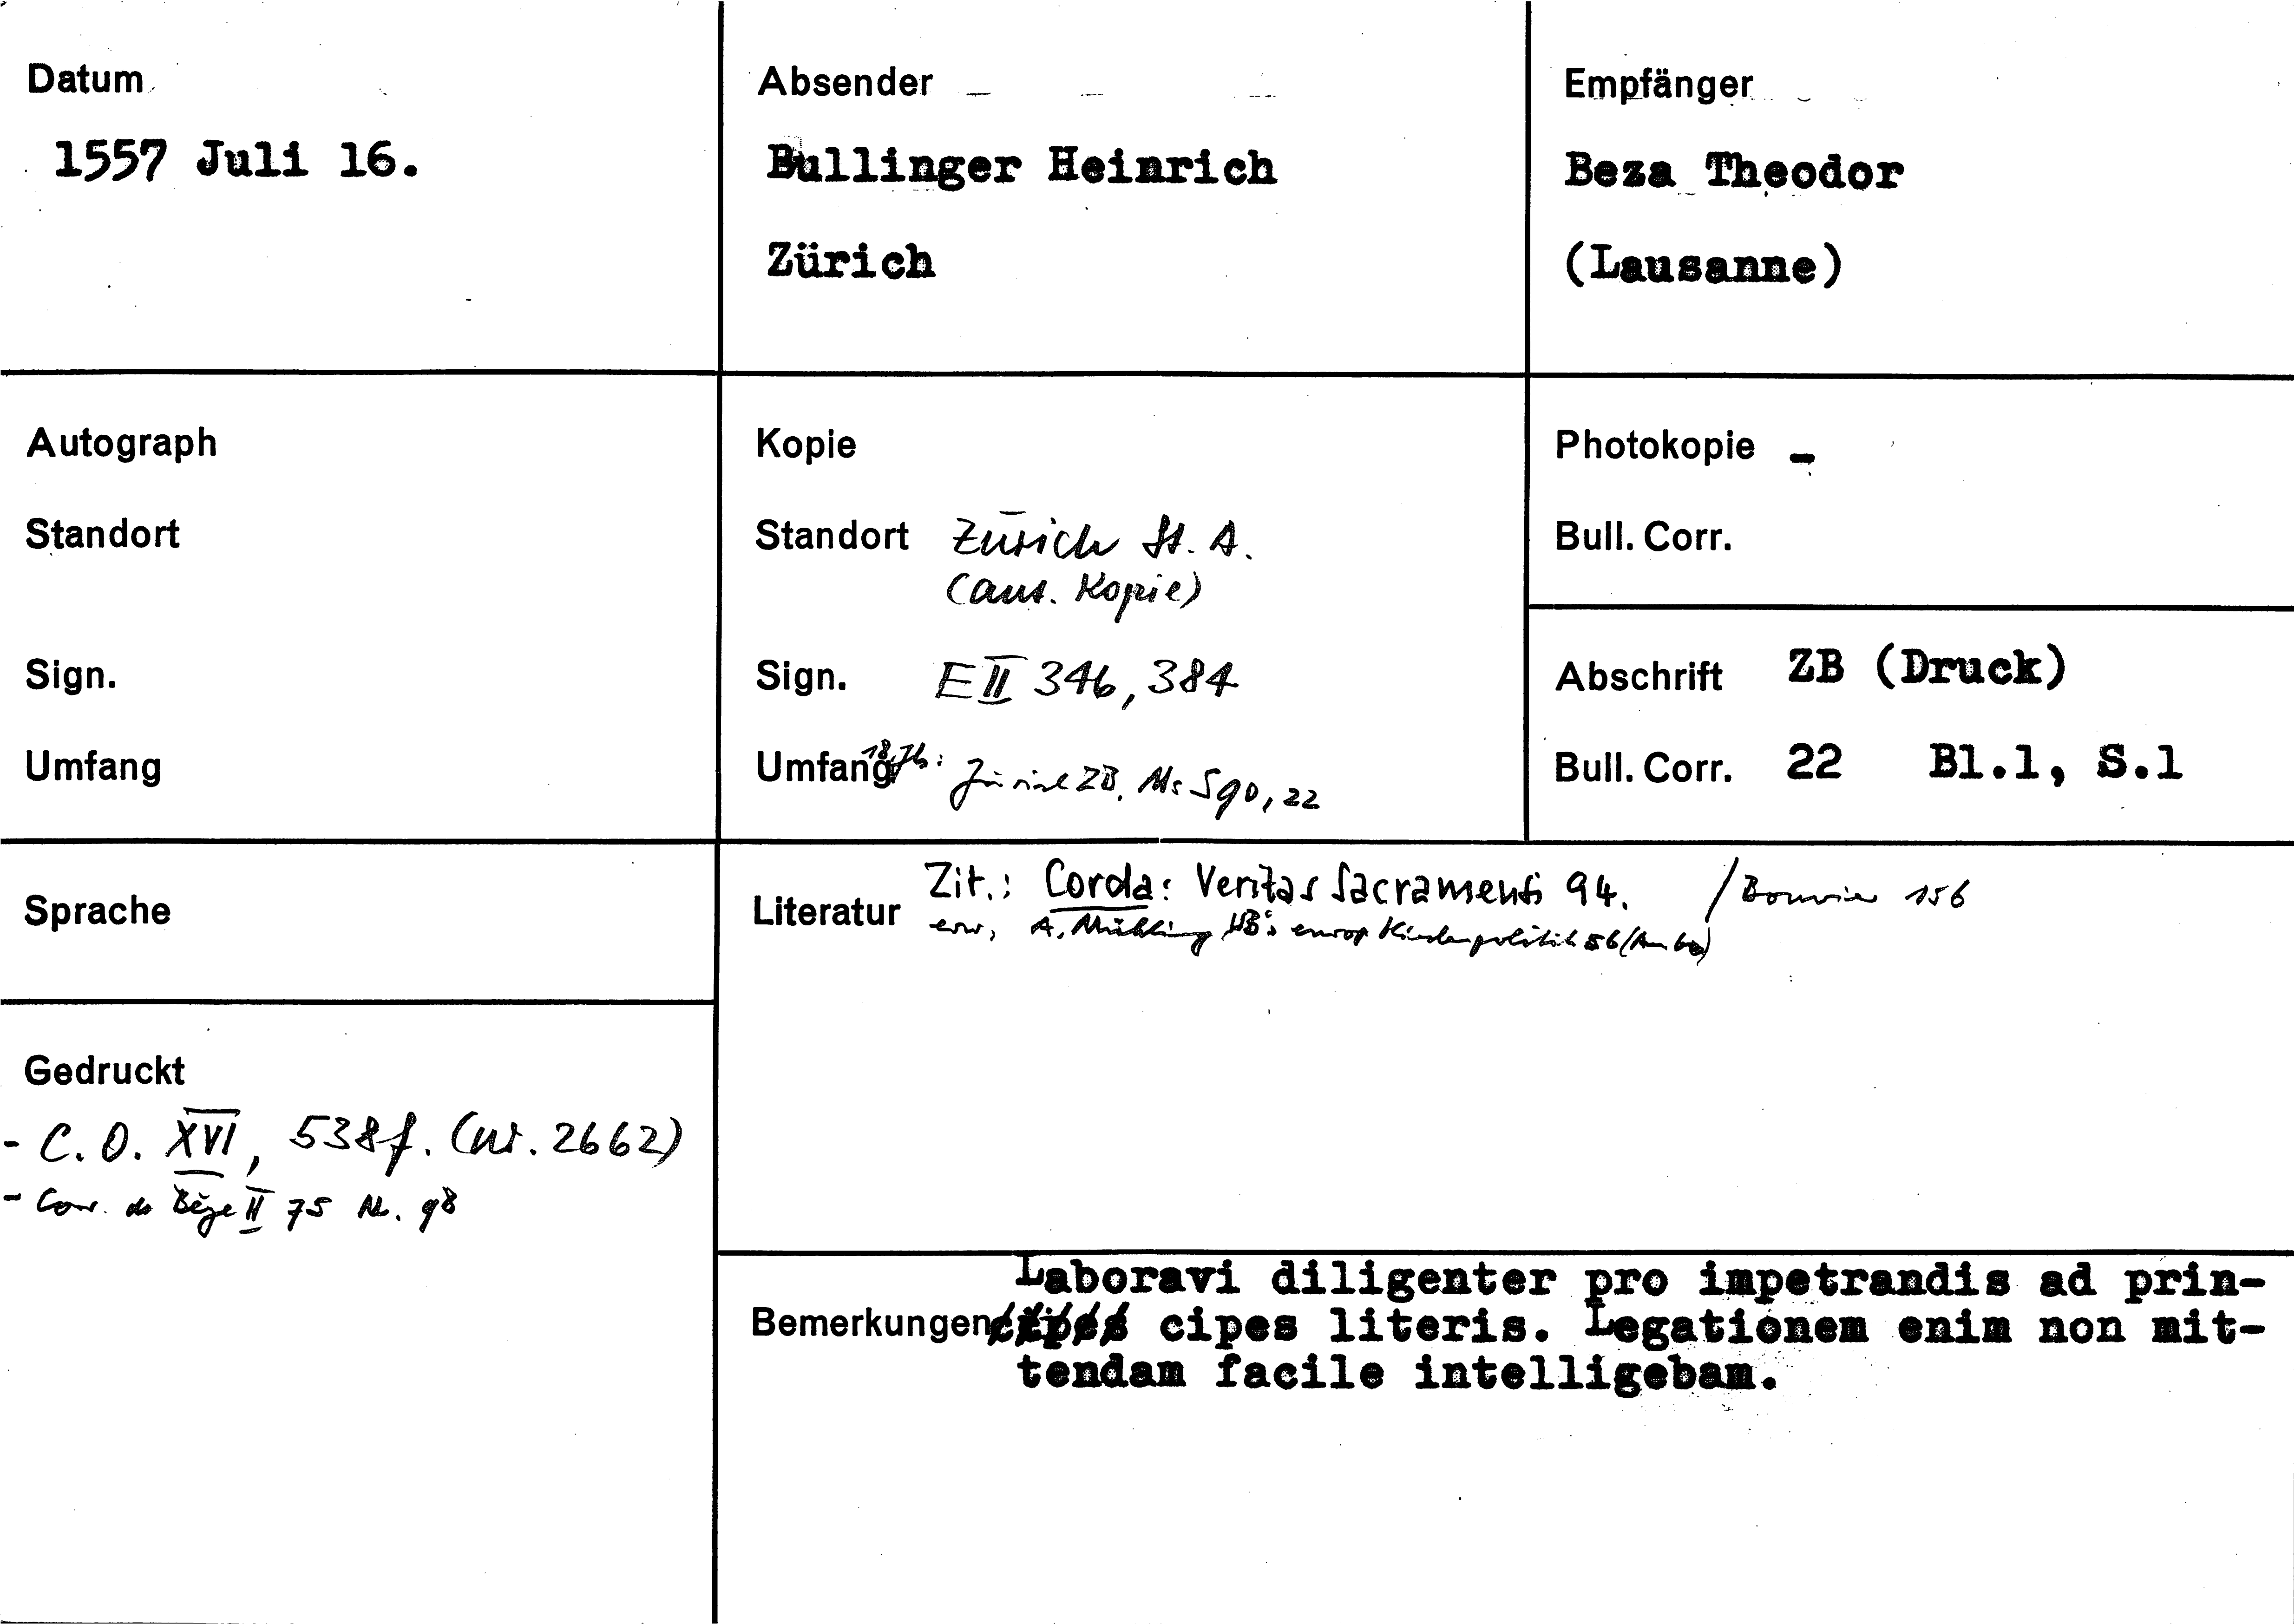 Datum
1557 Juli 16.
Absender
Bullinger Heinrich
Zürich
Empfänger
Beza Theodor
(Lausanne)
Autograph
Standort
Sign.
Umfang
Kopie
Standort Zürich St. A.
(aut. Kopie)
Sign. E II 346, 384
Umfang 18. Jh: Zürich ZB, Ms S 90, 22
Photokopie -
Bull. Corr.
Abschrift ZB (Druck)
Bull. Corr. 22 Bl.1, S.1
Sprache
Gedruckt
- C. O. XVI, 538f. (nr. 2662)
- Corr. de Bèze II 75 Nr. 98
Literatur Zit.: Corda: Veritas Sacramenti 94. / Bouvier 156
erw, A. Mühling HB's europ Kirchenpolitik 56
Bemerkungen Laboravi diligenter pro impetrandis ad prin-
cipes cipes literis. Legationem enim non mit-
tendam facile intelligebam.